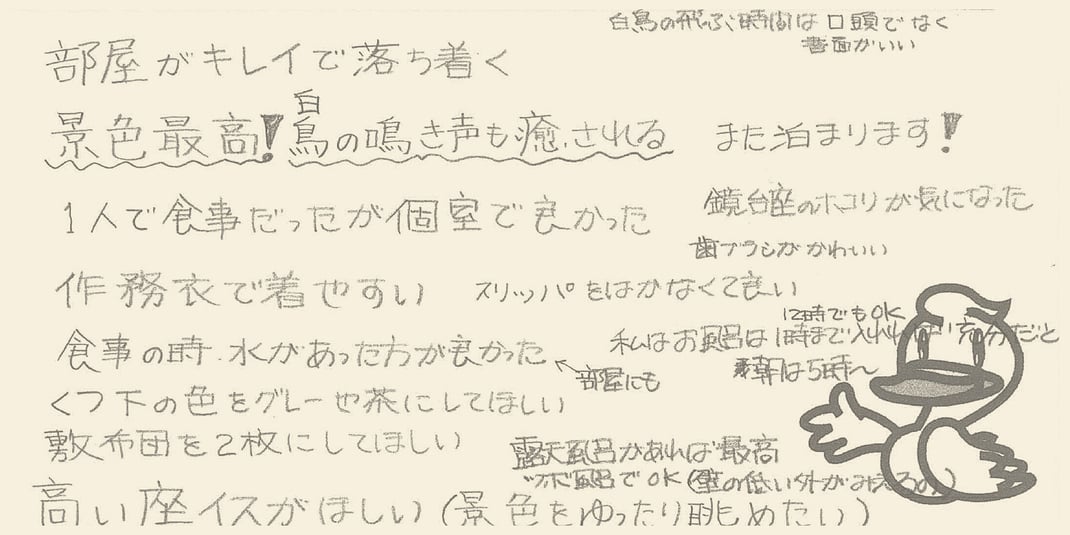 白鳥の飛ぶ時間は口頭でなく
書面がいい
部屋がキレイで落ち着く
景色最高！白鳥の鳴き声も癒される
また泊まります！
1人で食事だったが個室で良かった
鏡台座のホコリが気になった
歯ブラシがかわいい
作務衣で着やすい
スリッパをはかなくて良い
12時でもOK
私はお風呂は1時まで入れれば充分だと
朝は5時〜
食事の時水があった方が良かった
←部屋にも
くつ下の色をグレーや茶にしてほしい
敷布団を2枚にしてほしい
露天風呂があれば最高
ツボ風呂でOK(壁の低い外がみえるの)
高い座イスがほしい(景色をゆったり眺めたい)